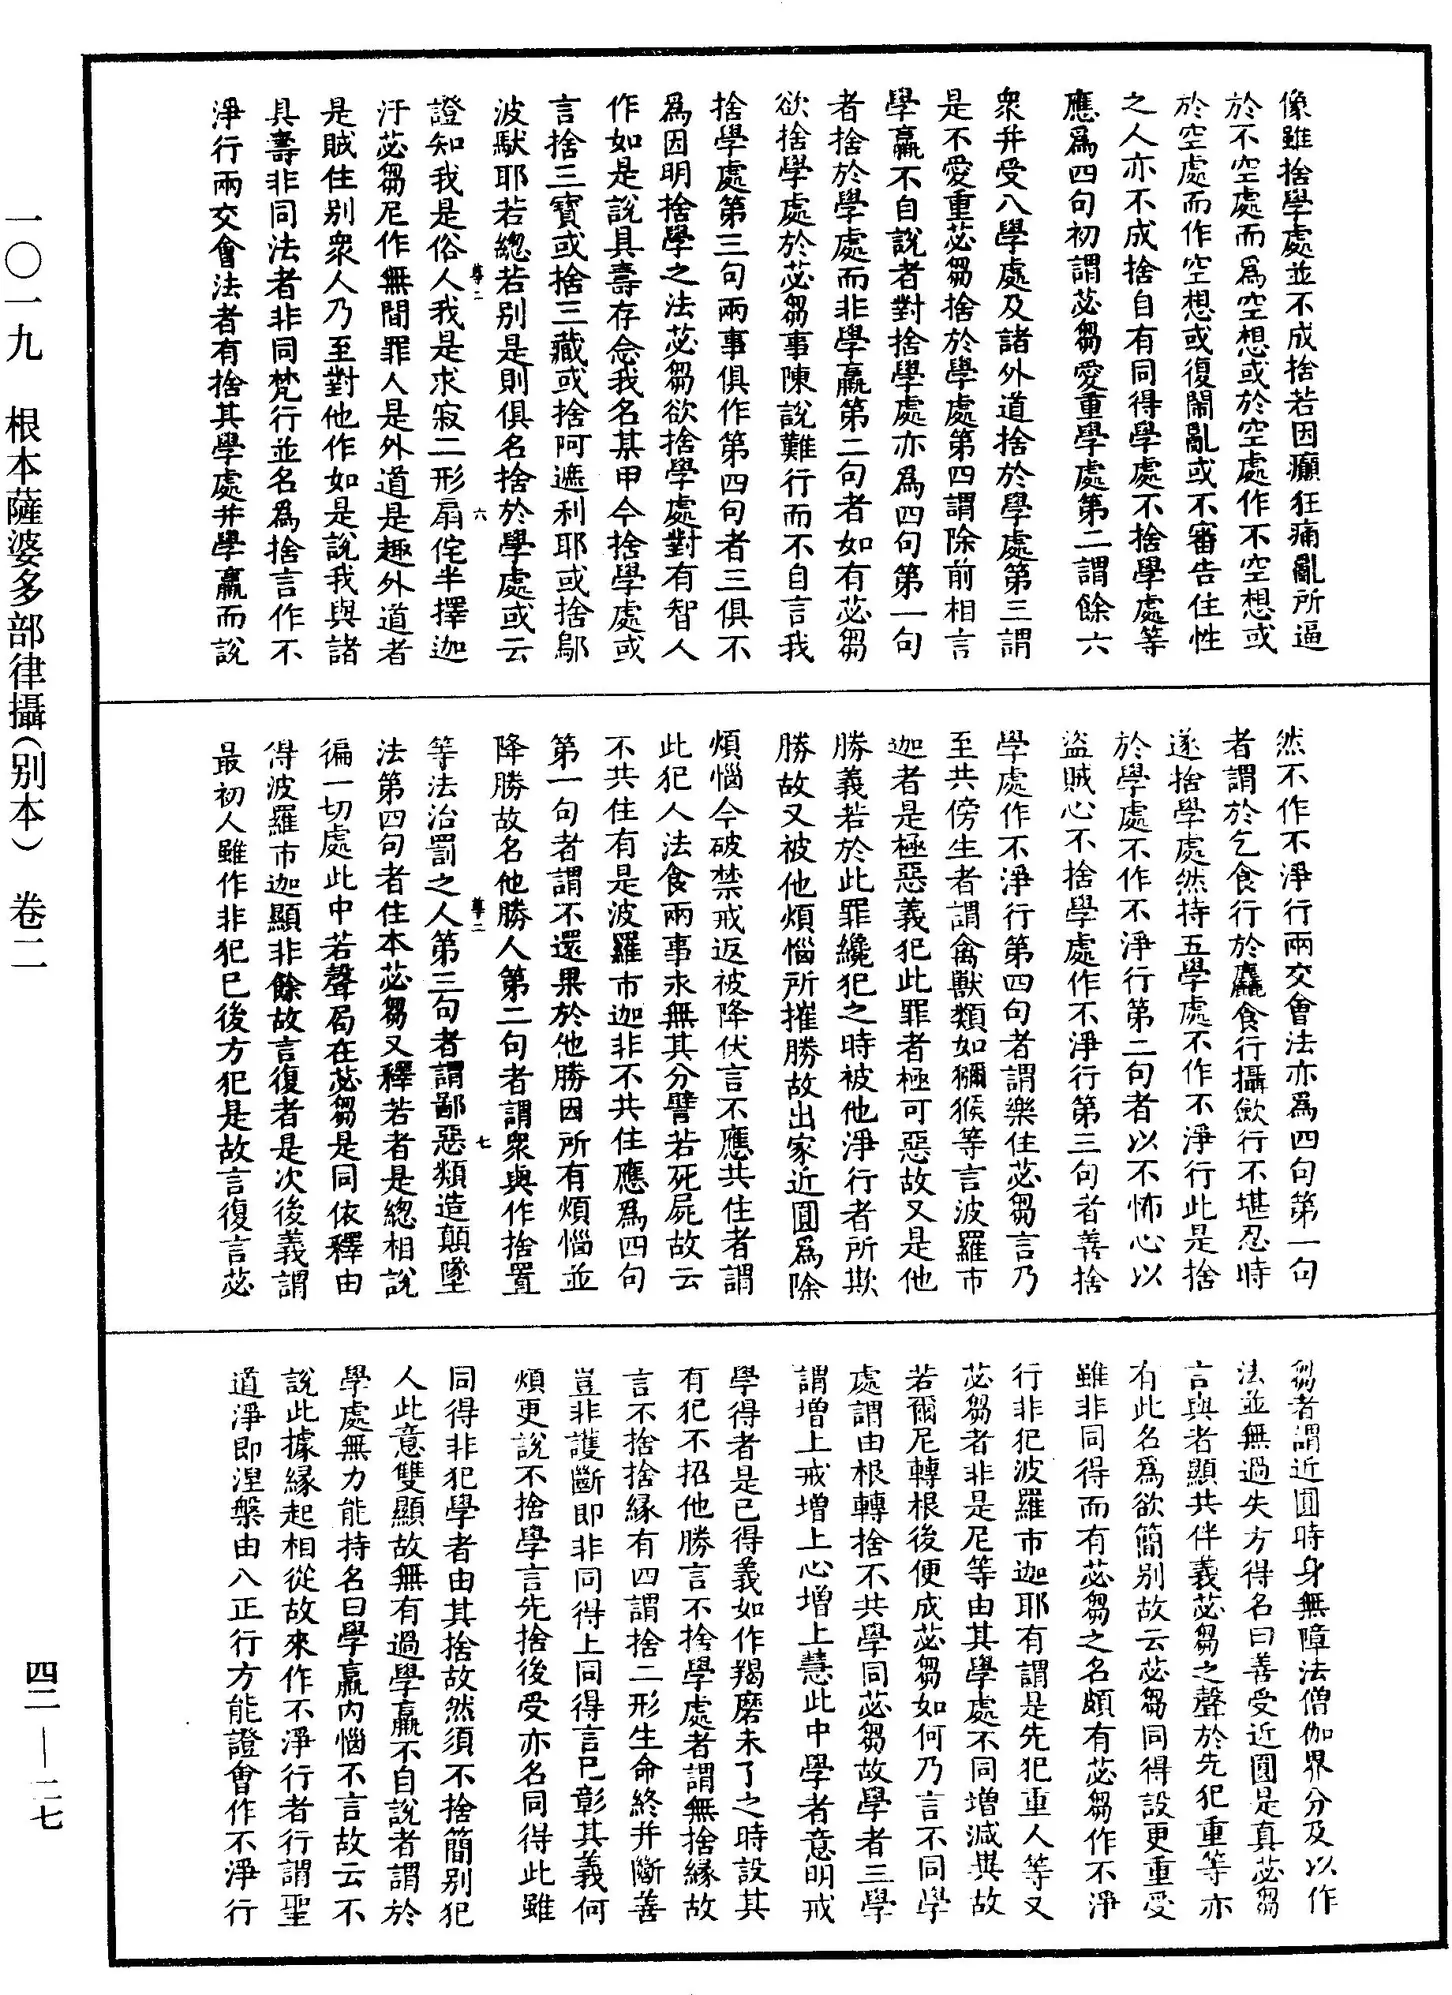 像雖捨學處並不成捨若因癲狂痛亂所逼
於不空處而為空想或於空處作不空想或
於空處而作空想或復鬧亂或不審告住性
之人亦不成捨自有同得學處不捨學處等
應為四句初謂苾芻愛重學處第二謂餘六
衆并受八學處及諸外道捨於學處第三謂
是不愛重苾芻捨於學處第四謂除前相言
學羸不自說者對捨學處亦為四句第一句
者捨於學處而非學羸第二句者如有苾芻
欲捨學處於苾芻事陳說難行而不自言我
捨學處第三句兩事俱作第四句者三俱不
為因明捨學之法苾芻欲捨學處對有智人
作如是說具壽存念我名某甲今捨學處或
言捨三寶或捨三藏或捨阿遮利耶或捨鄔
波馱耶若總若別是則俱名捨於學處或云
證知我是俗人我是求寂二形扇侘半擇迦
汙苾芻尼作無間罪人是外道是趣外道者
是賊住別衆人乃至對他作如是說我與諸
具壽非同法者非同梵行並名為捨言作不
淨行兩交會法者有捨其學處并學羸而說
尊二
六
然不作不淨行兩交會法亦為四句第一句
者謂於乞食行於麤食行攝斂行不堪忍時
遂捨學處然持五學處不作不淨行此是捨
於學處不作不淨行第二句者以不怖心以
盜賊心不捨學處作不淨行第三句者善捨
學處作不淨行第四句者謂樂住苾芻言乃
至共傍生者謂禽獸類如獼猴等言波羅市
迦者是極惡義犯此罪者極可惡故又是他
勝義若於此罪纔犯之時被他淨行者所欺
勝故又被他煩惱所摧勝故出家近圓為除
煩惱今破禁戒返被降伏言不應共住者謂
此犯人法食兩事永無其分譬若死屍故云
不共住有是波羅市迦非不共住應為四句
第一句者謂不還果於他勝因所有煩惱並
降勝故名他勝人第二句者謂衆與作捨置
等法治罰之人第三句者謂鄙惡類造顛墜
法第四句者住本苾芻又釋若者是總相說
徧一切處此中若聲局在苾芻是同依釋由
得波羅市迦顯非餘故言復者是次後義謂
最初人雖作非犯已後方犯是故言復言苾
尊二
七
芻者謂近圓時身無障法僧伽界分及以作
法並無過失方得名曰善受近圓是真苾芻
言與者顯共伴義苾芻之聲於先犯重等亦
有此名為欲簡別故云苾芻同得設更重受
雖非同得而有苾芻之名頗有苾芻作不淨
行非犯波羅市迦耶有謂是先犯重人等又
苾芻者非是尼等由其學處不同增減異故
若爾尼轉根後便成苾芻如何乃言不同學
處謂由根轉捨不共學同苾芻故學者三學
謂增上戒增上心增上慧此中學者意明戒
學得者是已得義如作羯磨未了之時設其
有犯不招他勝言不捨學處者謂無捨緣故
言不捨捨緣有四謂捨二形生命終并斷善
豈非護斷即非同得上同得言已彰其義何
煩更說不捨學言先捨後受亦名同得此雖
同得非犯學者由其捨故然須不捨簡別犯
人此意雙顯故無有過學羸不自說者謂於
學處無力能持名曰學羸內惱不言故云不
說此據緣起相從故來作不淨行者行謂聖
道淨即涅槃由八正行方能證會作不淨行
一〇一九　根本薩婆多部律攝（別本）　卷二
四二—二七